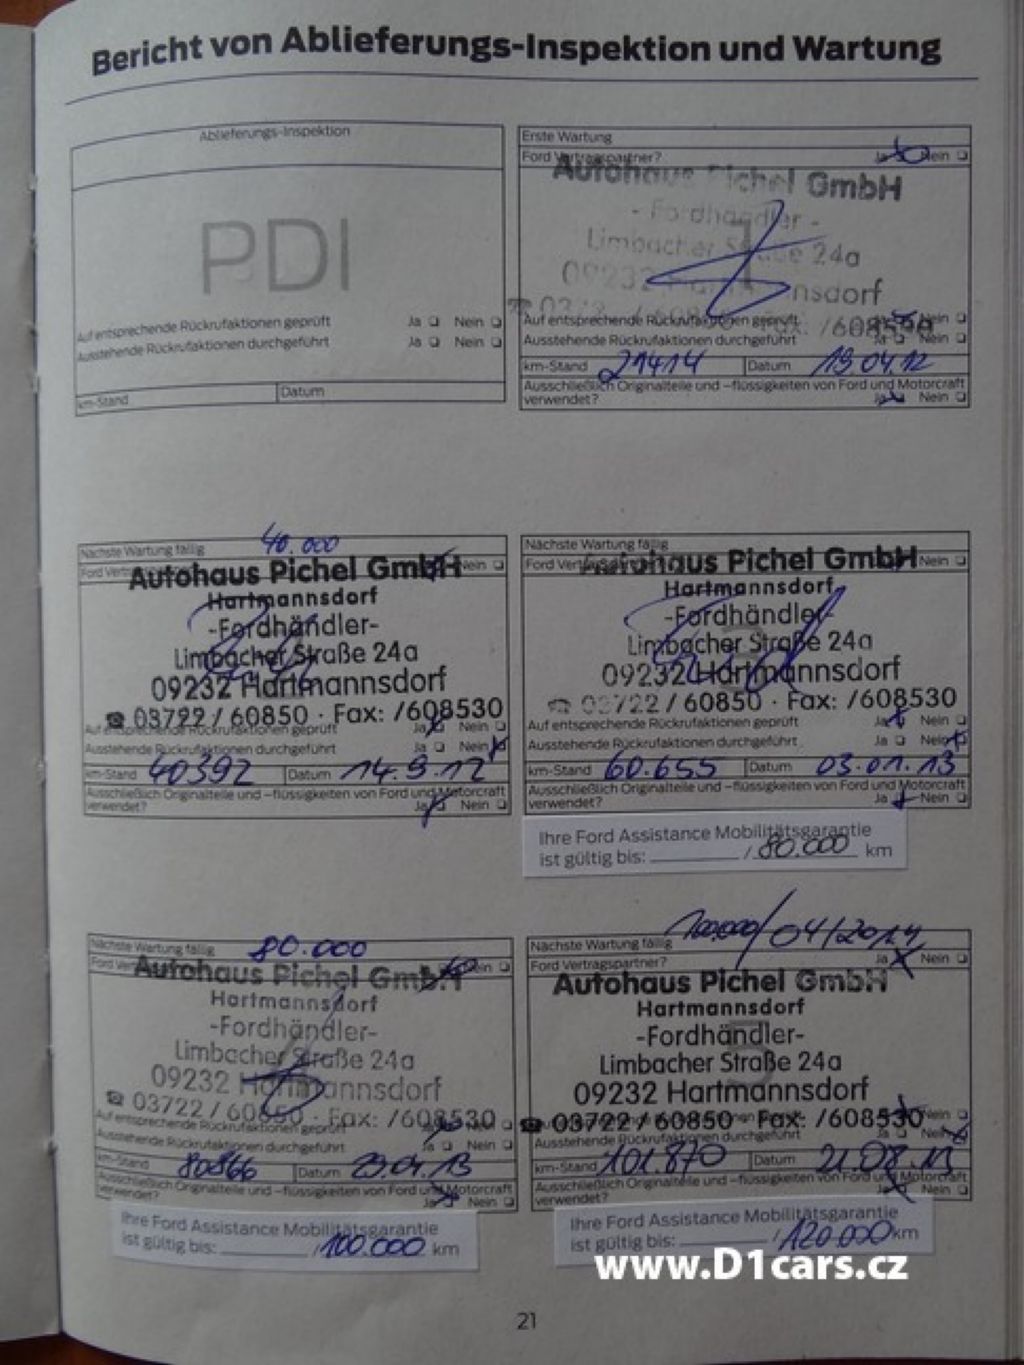 Bericht von Ablieferungs-Inspektion und Wartung
Ablieferungs-Inspektion
PDI
Auf entsprechende Rückrufaktionen geprüft Ja Nein
Ausstehende Rückrufaktionen durchgeführt Ja Nein
km-Stand Datum
Erste Wartung
Ford Vertragspartner? Ja Nein
Autohaus Pichel GmbH
- Fordhändler -
Limbacher Straße 24a
09232
1
Auf entsprechende Rückrufaktionen geprüft Nein
Ausstehende Rückrufaktionen durchgeführt Ja Nein
km-Stand 21414 Datum 19.04.12
Ausschließlich Originalteile und -flüssigkeiten von Ford und Motorcraft
verwendet? Ja Nein
Nächste Wartung fällig 40.000
Nein
Autohaus Pichel GmbH
Hartmannsdorf
-Fordhändler-
Limbacher Straße 24a
09232 Hartmannsdorf
☎ 03722 / 60850 · Fax: /608530
Auf entsprechende Rückrufaktionen geprüft Ja Nein
Ausstehende Rückrufaktionen durchgeführt Ja Nein
km-Stand 40392 Datum 14.9.12
Ausschließlich Originalteile und -flüssigkeiten von Ford und Motorcraft
verwendet? Ja Nein
Nächste Wartung fällig
Nein
Autohaus Pichel GmbH
Hartmannsdorf
-Fordhändler-
Limbacher Straße 24a
09232 Hartmannsdorf
☎ 03722 / 60850 · Fax: /608530
Auf entsprechende Rückrufaktionen geprüft Ja Nein
Ausstehende Rückrufaktionen durchgeführt Ja Nein
km-Stand 60.655 Datum 03.01.13
Ausschließlich Originalteile und -flüssigkeiten von Ford und Motorcraft
verwendet? Ja Nein
Ihre Ford Assistance Mobilitätsgarantie
ist gültig bis: / 80.000 km
Nächste Wartung fällig 80.000
Nein
Autohaus Pichel GmbH
Hartmannsdorf
-Fordhändler-
Limbacher Straße 24a
09232 Hartmannsdorf
☎ 03722 / 60850 · Fax: /608530
Auf entsprechende Rückrufaktionen geprüft Nein
Ausstehende Rückrufaktionen durchgeführt Ja Nein
km-Stand 80866 Datum 23.04.13
Ausschließlich Originalteile und -flüssigkeiten von Ford und Motorcraft
verwendet? Ja Nein
Ihre Ford Assistance Mobilitätsgarantie
ist gültig bis: / 100.000 km
Nächste Wartung fällig 100.000/04/2014
Ford Vertragspartner? Ja Nein
Autohaus Pichel GmbH
Hartmannsdorf
-Fordhändler-
5
Limbacher Straße 24a
09232 Hartmannsdorf
☎ 03722 / 60850 · Fax: /608530
Nein
Ausstehende Rückrufaktionen durchgeführt Nein
km-Stand 101.870 Datum 21.08.13
Ausschließlich Originalteile und -flüssigkeiten von Ford und Motorcraft
verwendet? Ja Nein
Ihre Ford Assistance Mobilitätsgarantie
ist gültig bis: / 120.000 km
www.D1cars.cz
21